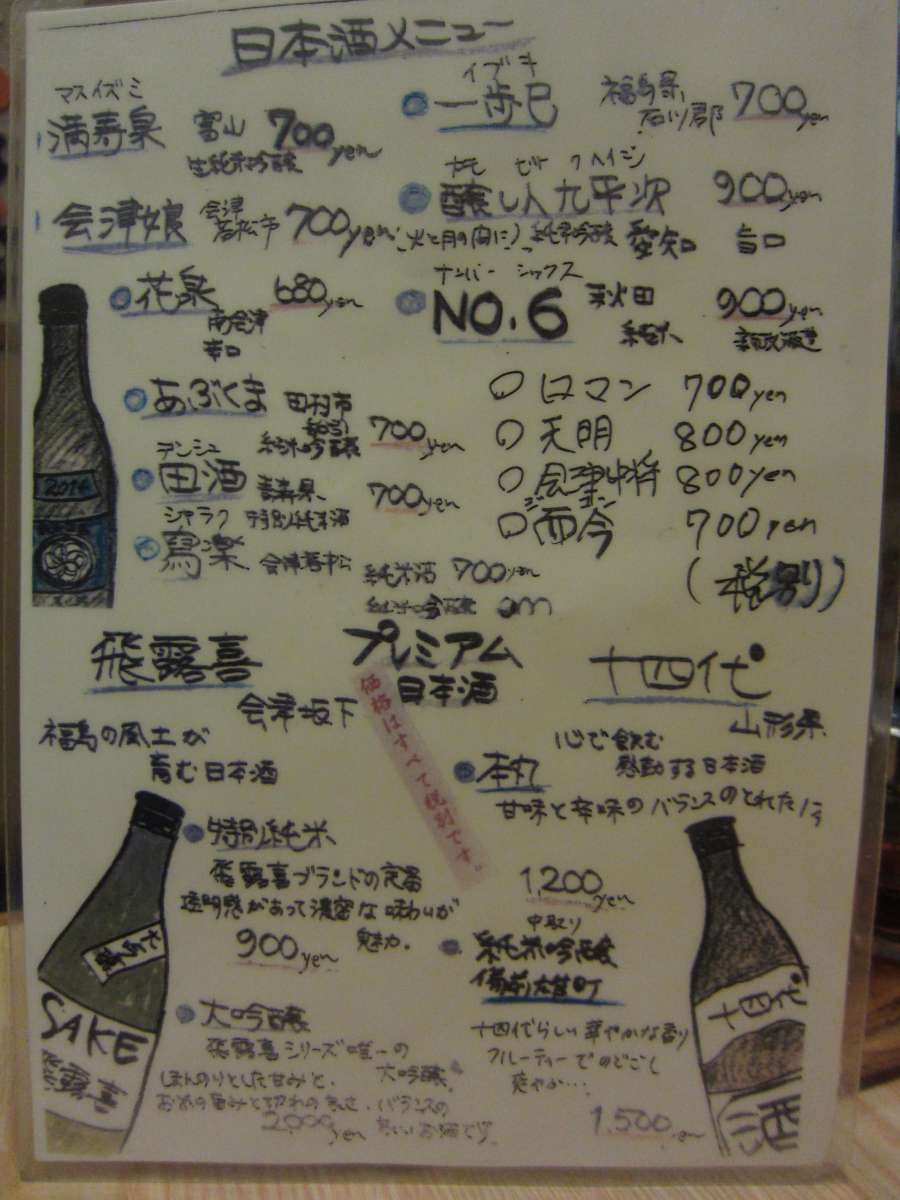 日本酒メニュー
マスイズミ
満寿泉 富山 700yen
生純米吟醸
会津娘 会津若松市 700yen
花泉 680yen
南会津
辛口
あぶくま 田村市
純米吟醸 700yen
デンシュ
田酒 青森県 700yen
特別純米酒
シャラク
寫楽 会津若松
純米酒 700yen
純米吟醸
イブキ
一歩己 福島県石川郡 700yen
カモシビトクヘイジ
醸し人九平次 900yen
(火と月の間に) 純米吟醸 愛知 旨口
ナンバーシックス
NO.6 秋田 900yen
純米 新政酒造
ロマン 700yen
天明 800yen
会津中将 800yen
ジコン
而今 700yen
(税別)
プレミアム
日本酒
価格はすべて税別です。
飛露喜
会津坂下
福島の風土が
育む日本酒
特別純米
飛露喜ブランドの定番
透明感があって濃密な味わいが
魅力。
900yen
大吟醸
飛露喜シリーズ唯一の
大吟醸。
ほんのりとした甘みと、
お米の旨みと切れの良さ、バランスの
良いお酒です
2,000yen
SAKE
飛露喜
2014
十四代
山形県
心で飲む
感動する日本酒
本丸
甘味と辛味のバランスのとれた
1,200yen
中取り
純米吟醸
備前雄町
十四代らしい華やかな香り
フルーティーでのどごし
爽やか…
1,500yen
十四代
酒